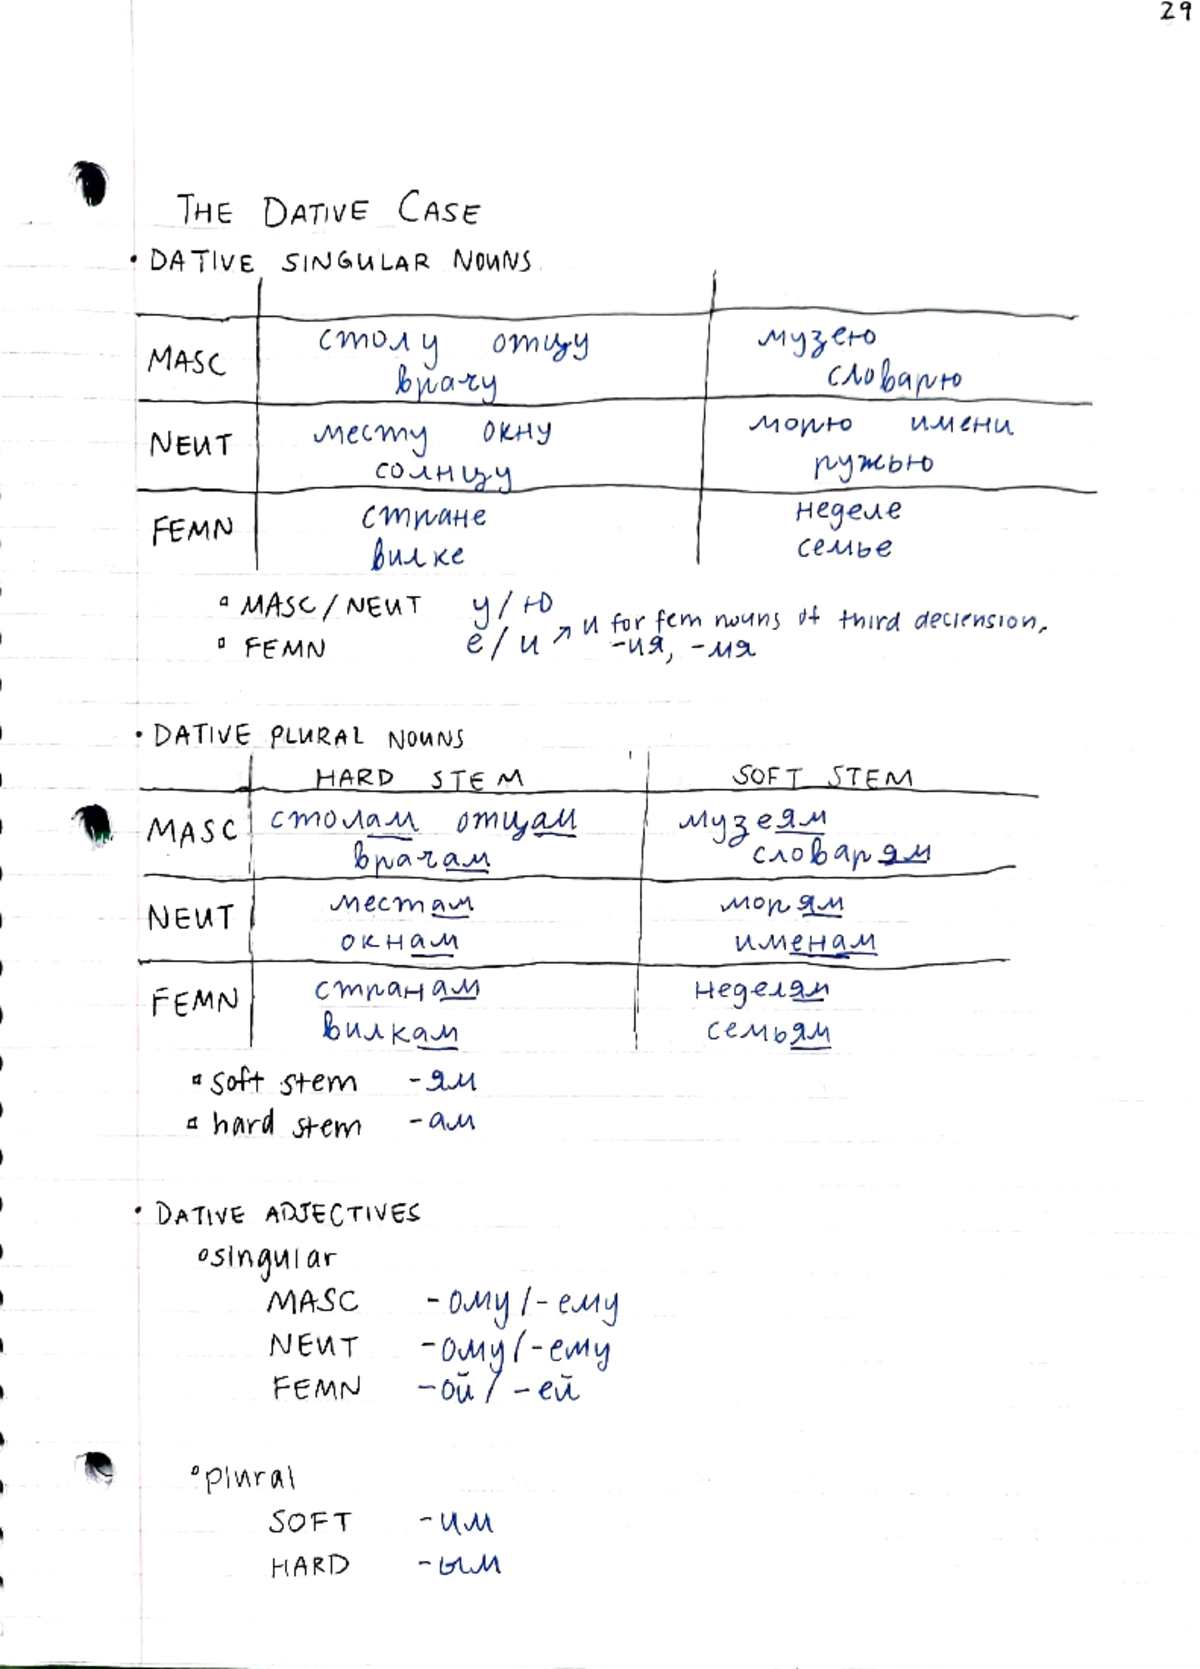 29
THE DATIVE CASE
• DATIVE SINGULAR NOUNS
MASC столу отцу музею
врачу словарю
NEUT месту окну морю имени
солнцу ружью
FEMN стране неделе
вилке семье
▫ MASC/NEUT у/ю
▫ FEMN е/и ↗ и for fem nouns of third declension,
-ия, -мя
• DATIVE PLURAL NOUNS
HARD STEM SOFT STEM
MASC столам отцам музеям
врачам словарям
NEUT местам морям
окнам именам
FEMN странам неделям
вилкам семьям
▫ soft stem -ям
▫ hard stem -ам
• DATIVE ADJECTIVES
▫ singular
MASC -ому/-ему
NEUT -ому/-ему
FEMN -ой/-ей
▫ plural
SOFT -им
HARD -ым